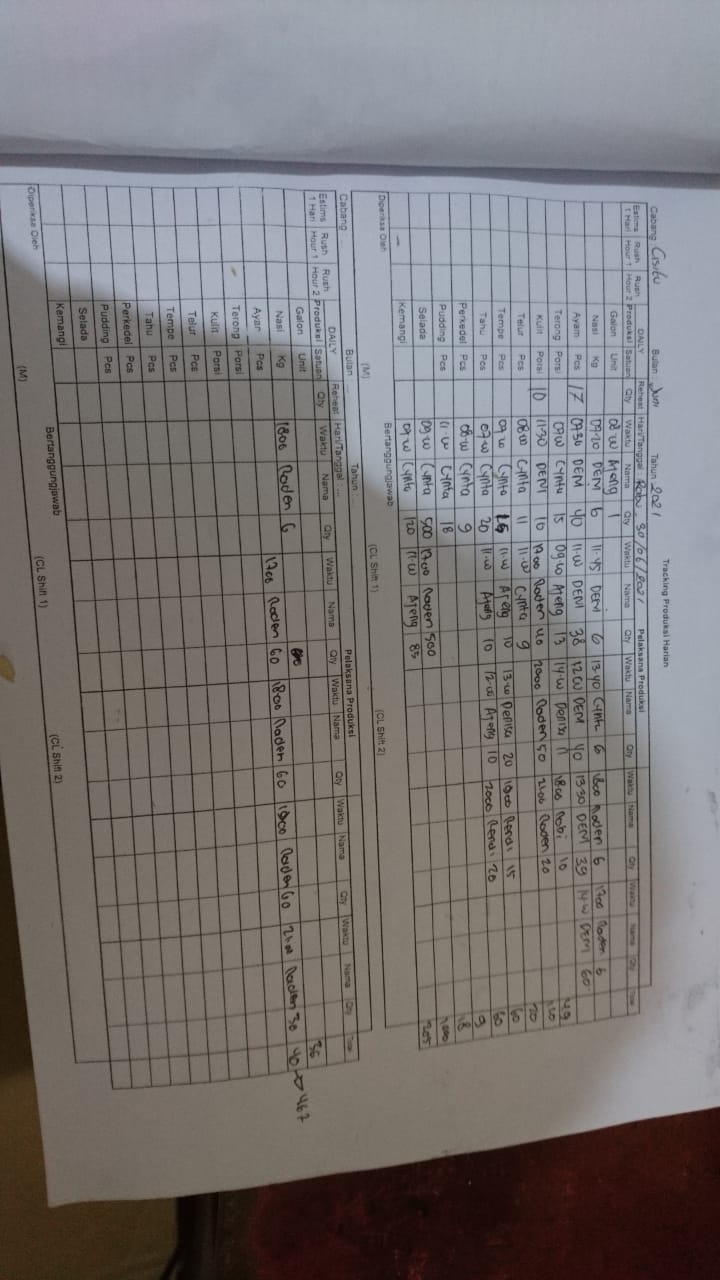 Tracking Produksi Harian
Cabang : Cisitu Bulan : Juni Tahun : 2021
Estims Rush Rush DAILY Reheat Hari/Tanggal : Rabu, 30/06/2021 Pelaksana Produksi
1 Hari Hour 1 Hour 2 Produksi Satuan Qty Waktu Nama Qty Waktu Nama Qty Waktu Nama Qty Waktu Nama Qty Waktu Nama Qty Total
Galon Unit 08.00 Ateng 1
Nasi Kg 09.20 DEM 6 11.45 DEM 6 13.40 Cynta 6 1600 Raden 6 1700 Raden 6
Ayam Pcs 17 09.30 DEM 40 11.00 DEM 38 12.00 DEM 40 13.30 DEM 39 14.00 DEM 60
Terong Porsi 09.00 Cynta 15 09.00 Ateng 13 14.00 Denisa 11 1800 Robi 10 49
Kulit Porsi 10 11.30 DEM 10 1700 Raden 40 2000 Raden 50 2100 Raden 20 120
Telur Pcs 08.00 Cynta 11 11.00 Cynta 9 20
Tempe Pcs 09.00 Cynta 15 11.00 Ateng 10 13.00 Denisa 20 1900 Rendi 15 60
Tahu Pcs 07.00 Cynta 20 11.00 Ateng 10 12.00 Ateng 10 2000 Rendi 20 60
Perkedel Pcs 08.00 Cynta 9 9
Pudding Pcs 11.00 Cynta 18 18
Selada 09.00 Cynta 500 1700 Raden 500 1000
Kemangi 09.00 Cynta 120 11.00 Ateng 85 205
Diperiksa Oleh Bertanggungjawab
(M) (CL Shift 1) (CL Shift 2)
Cabang : Bulan : Tahun :
Estims Rush Rush DAILY Reheat Hari/Tanggal : Pelaksana Produksi
1 Hari Hour 1 Hour 2 Produksi Satuan Qty Waktu Nama Qty Waktu Nama Qty Waktu Nama Qty Waktu Nama Qty Waktu Nama Qty Total
Galon Unit
Nasi Kg 1800 Raden 6 36
Ayam Pcs 1700 Raden 60 1800 Raden 60 1900 Raden 60 2100 Raden 30 40 → 467
Terong Porsi
Kulit Porsi
Telur Pcs
Tempe Pcs
Tahu Pcs
Perkedel Pcs
Pudding Pcs
Selada
Kemangi
Diperiksa Oleh Bertanggungjawab
(M) (CL Shift 1) (CL Shift 2)